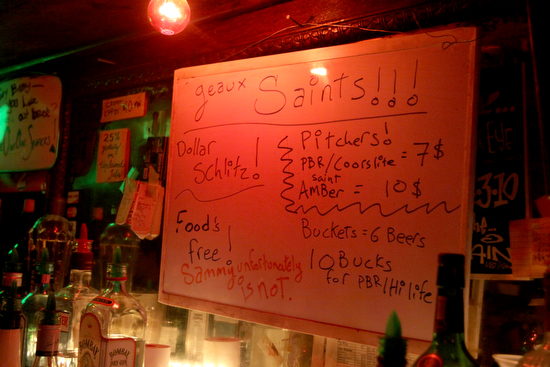 geaux Saints!!!
Dollar
Schlitz!
Pitchers!
PBR/Coorslite = 7$
saint
AMBer = 10$
Food's
free!
Sammy unfortunately
is not.
Buckets = 6 Beers
10 Bucks
for PBR/Hilife
25%
3-10
BOMBAY